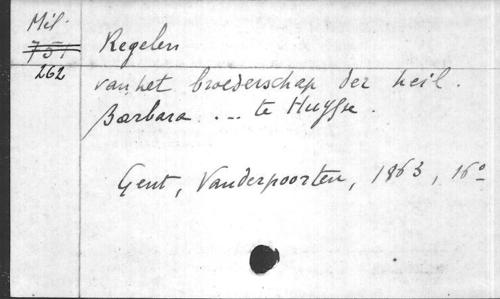 Mil.
751 Regelen
262
van het broederschap der heil.
Barbara ... te Huysse.
Gent, Vanderpoorten, 1863, 16°